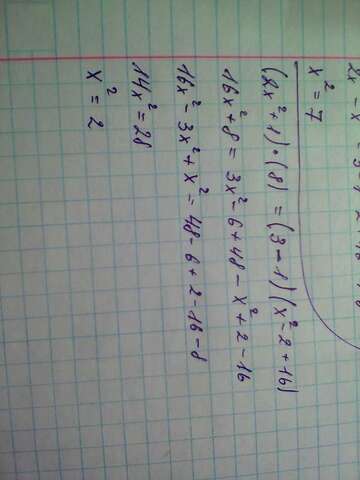 x² = 7
(2x² + 1) · (8) = (3 - 1)(x² - 2 + 16)
16x² + 8 = 3x² - 6 + 48 - x² + 2 - 16
16x² - 3x² + x² = 48 - 6 + 2 - 16 - 8
14x² = 28
x² = 2